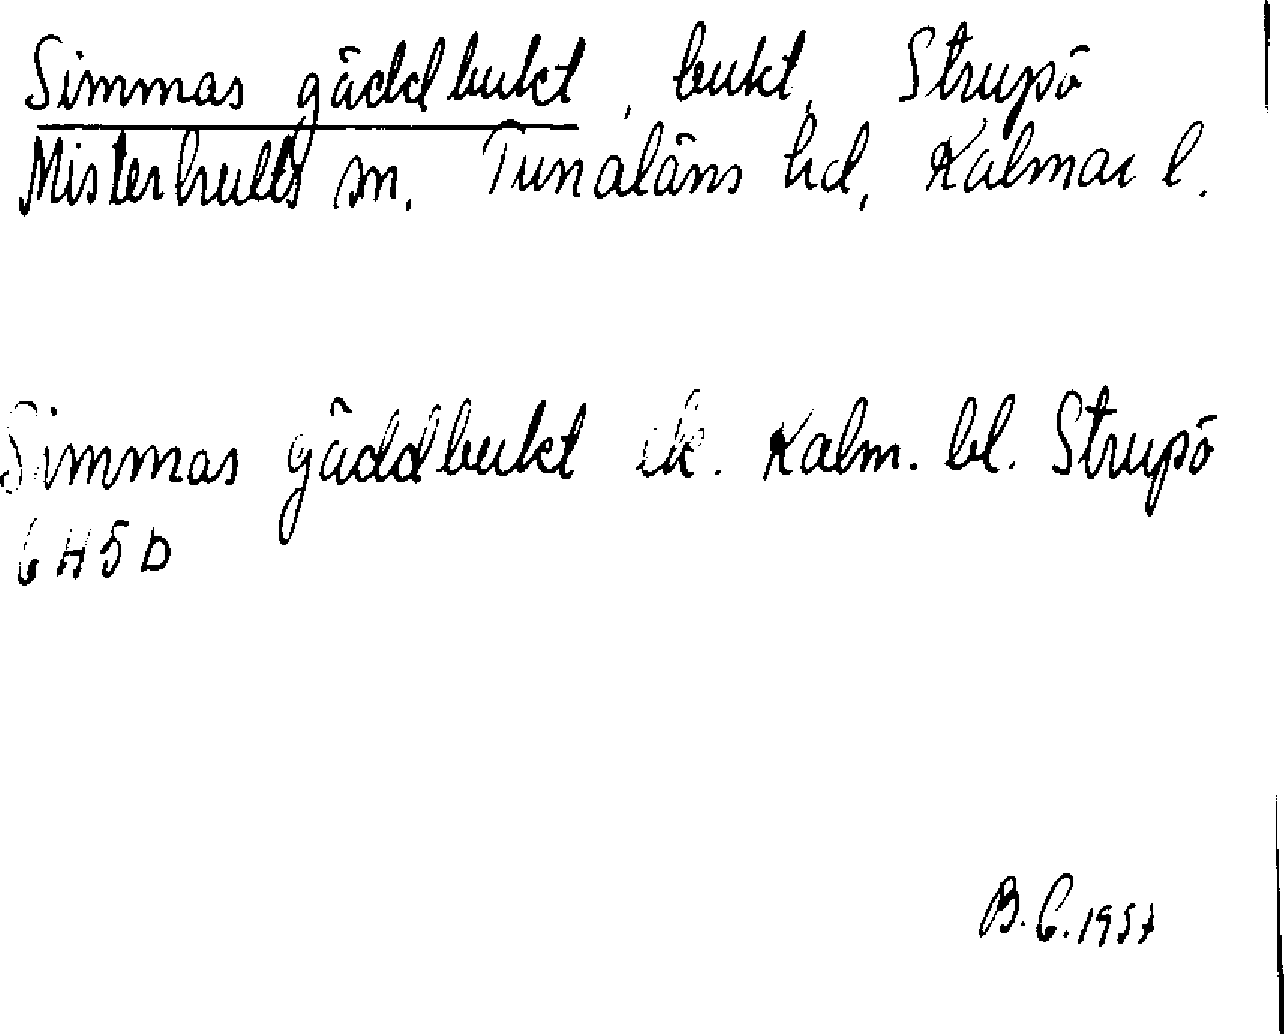 Simmas gäddbukt, bukt, Strupö
Misterhults sn. Tunaläns hd, Kalmar l.
Simmas gäddbukt ek. Kalm. bl. Strupö
6H5D
B.C. 1957